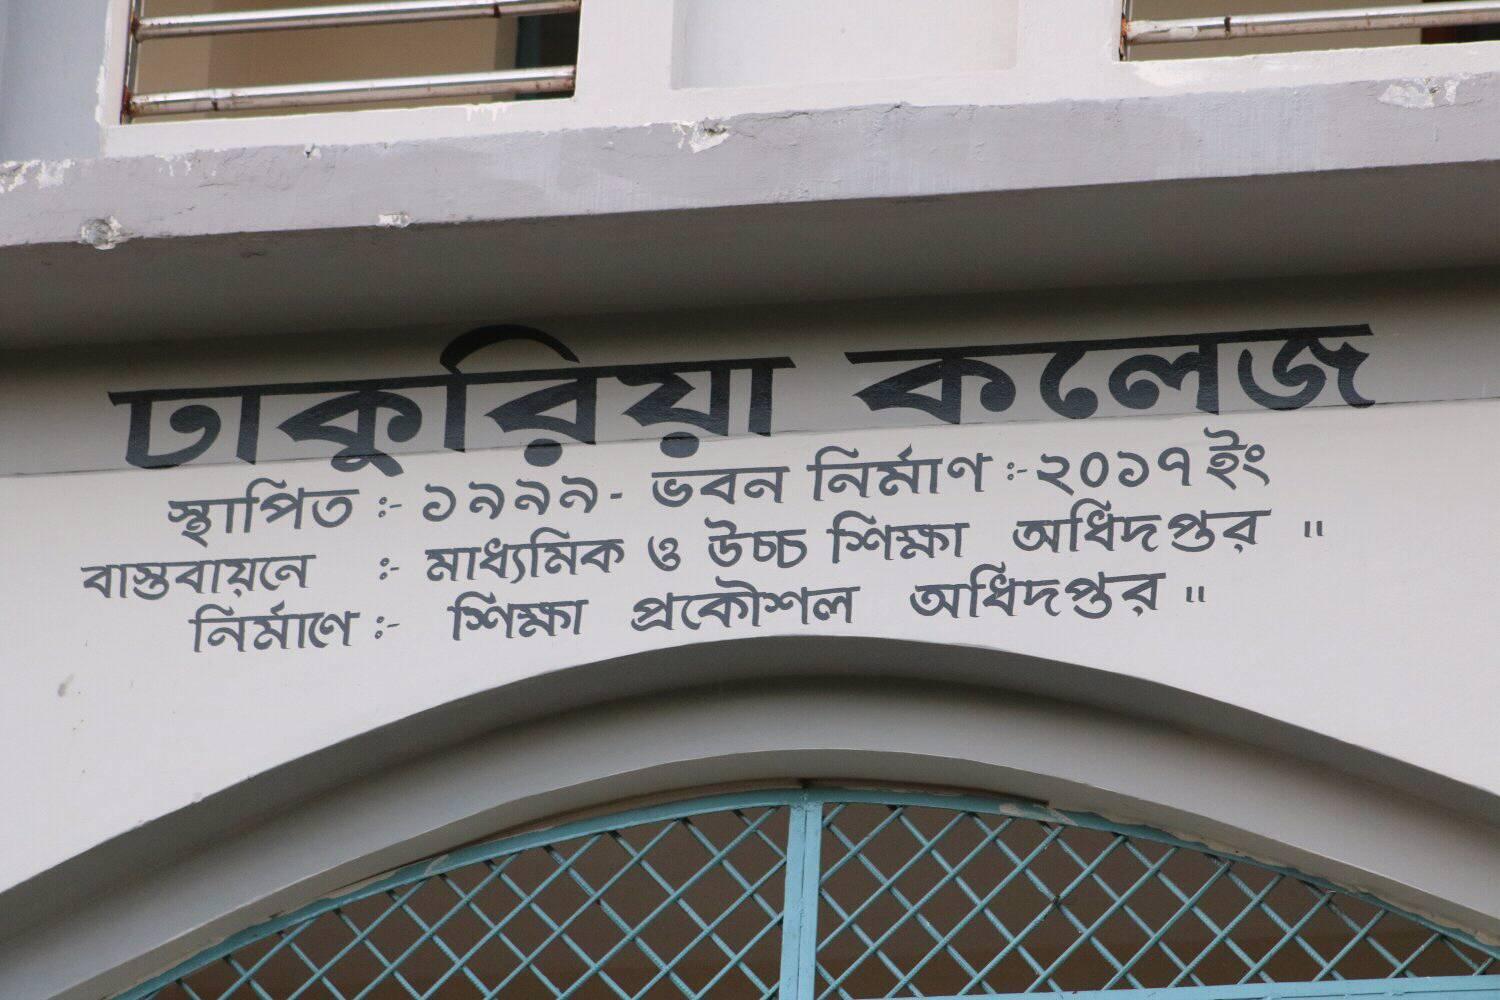 ঢাকুরিয়া কলেজ
স্থাপিত :- ১৯৯৯- ভবন নির্মাণ :- ২০১৭ ইং
বাস্তবায়নে :- মাধ্যমিক ও উচ্চ শিক্ষা অধিদপ্তর "
নির্মাণে :- শিক্ষা প্রকৌশল অধিদপ্তর "